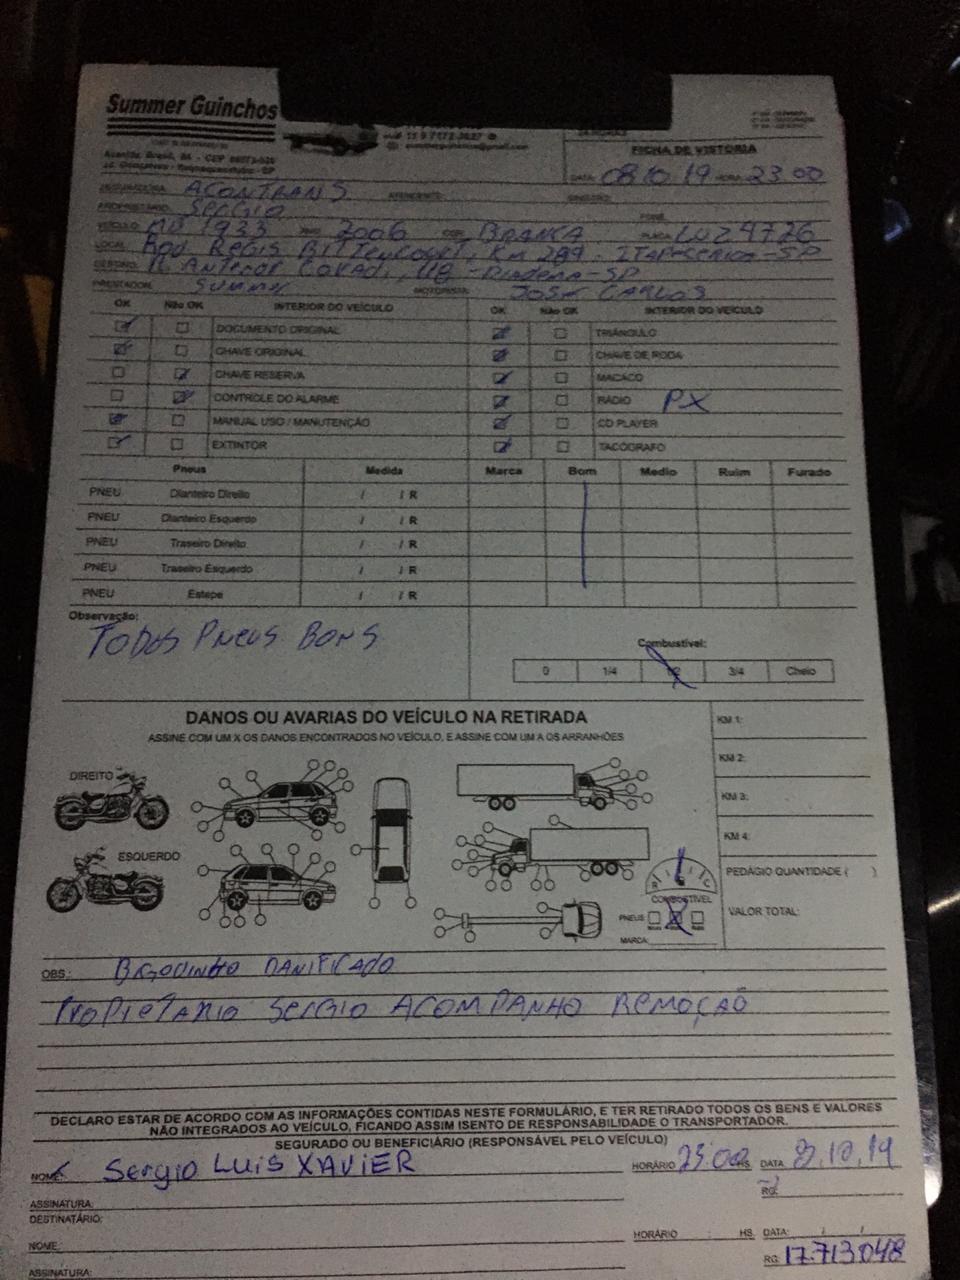 Summer Guinchos
FICHA DE VISTORIA
DATA: 08.10.19 HORA: 23:00
ACONTRANS
SERGIO
VEÍCULO: 1933 ANO: 2006 COR: BRANCA PLACA: LUZ4726
LOCAL: ROD. REGIS BITTENCOURT, KM 289 - ITAP. -SP
R. ANTENOR 118 - DIADEMA-SP
PRESTADOR: SUMMER MOTORISTA: JOSÉ CARLOS
OK Não OK INTERIOR DO VEÍCULO OK Não OK INTERIOR DO VEÍCULO
DOCUMENTO ORIGINAL TRIÂNGULO
CHAVE ORIGINAL CHAVE DE RODA
CHAVE RESERVA MACACO
CONTROLE DO ALARME RÁDIO PX
MANUAL USO / MANUTENÇÃO CD PLAYER
EXTINTOR TACÓGRAFO
Pneus Medida Marca Bom Medio Ruim Furado
PNEU Dianteiro Direito / / R
PNEU Dianteiro Esquerdo / / R
PNEU Traseiro Direito / / R
PNEU Traseiro Esquerdo / / R
PNEU Estepe / / R
Observação:
TODOS PNEUS BONS
Combustível:
0 1/4 1/2 3/4 Cheio
DANOS OU AVARIAS DO VEÍCULO NA RETIRADA
ASSINE COM UM X OS DANOS ENCONTRADOS NO VEÍCULO, E ASSINE COM UM A OS ARRANHÕES
KM 1:
KM 2:
KM 3:
KM 4:
DIREITO
ESQUERDO
PEDÁGIO QUANTIDADE ( )
R C
COMBUSTÍVEL
PNEUS
MARCA:
VALOR TOTAL:
OBS.: BIGODINHO DANIFICADO
PROPIETARIO SERGIO ACOMPANHO REMOÇÃO
DECLARO ESTAR DE ACORDO COM AS INFORMAÇÕES CONTIDAS NESTE FORMULÁRIO, E TER RETIRADO TODOS OS BENS E VALORES
NÃO INTEGRADOS AO VEÍCULO, FICANDO ASSIM ISENTO DE RESPONSABILIDADE O TRANSPORTADOR.
SEGURADO OU BENEFICIÁRIO (RESPONSÁVEL PELO VEÍCULO)
NOME: Sergio LUIS XAVIER HORÁRIO 23:00 HS. DATA 8.10.19
RG:
ASSINATURA:
DESTINATÁRIO:
NOME: HORÁRIO : HS. DATA: / /
RG: 17.713.048
ASSINATURA: